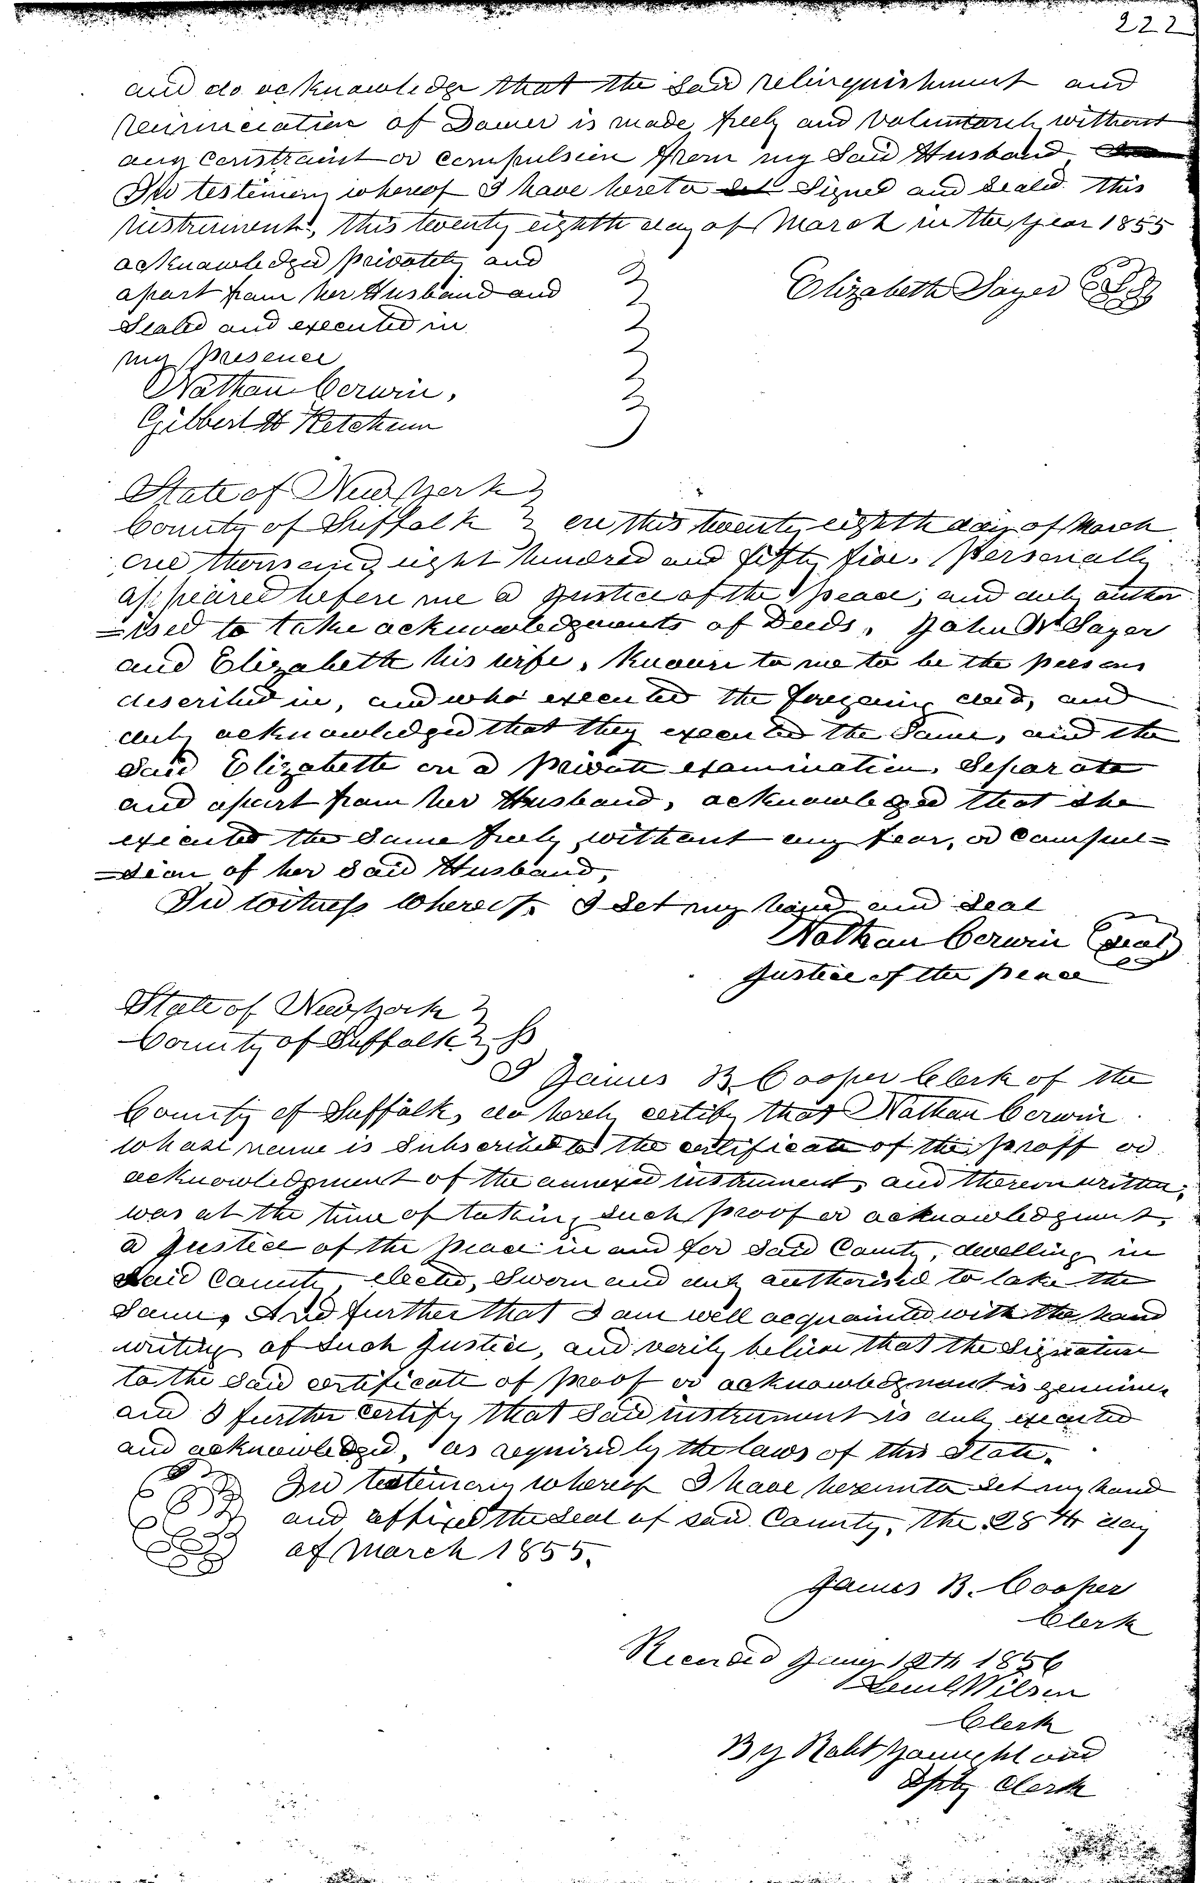 222
and do acknowledge that the said relinquishment and
renunciation of Dower is made, freely and voluntarily without
any constraint or compulsion from my said Husband,
In testimony whereof I have hereto set Signed and Sealed this
instrument, this twenty eighth day of March in the Year 1855
acknowledged privately and
apart from her Husband and
Sealed and executed in
my presence
Elizabeth Sayer
Nathan Corwin,
Gilbert H Ketcham
State of New York
County of Suffolk on this twenty eighth day of March
one thousand eight hundred and fifty five. Personally
appeared before me a Justice of the peace, and duly author
=ised to take acknowledgments of Deeds, John N Sayer
and Elizabeth his wife, known to me to be the persons
described in, and who executed the foregoing deed, and
duly acknowledged that they executed the Same, and the
Said Elizabeth on a private examination, Separate
and apart from her Husband, acknowledged that she
executed the Same freely, without any fear, or compul=
=sion of her said Husband,
In Witness whereof, I Set my hand and Seal
Nathan Corwin Seal
Justice of the peace
State of New York
County of Suffolk ss
I James B. Cooper Clerk of the
County of Suffolk, do herely certify that Nathan Corwin
whose name is Subscribed to the certificate of the proff or
acknowledgment of the annexed instrument, and thereon written,
was at the time of taking such proof or acknowledgment,
a Justice of the peace in and for Said County, dwelling in
Said County, elected, Sworn and duly authorised to take the
Same, And further that I am well acquainted with the hand
writing of Such Justice, and verily believe that the Signature
to the Said certificate of proof or acknowledgment is genuine,
and I further certify that Said instrument is duly executed
and acknowledged, as required by the laws of this State.
In testimony whereof I have hereunto Set my hand
and affixed the Seal of said County, the 28th day
of March 1855.
James B. Cooper
Clerk
Recorded 12th 1856
Wilson
Clerk
By Robt
Dpty Clerk